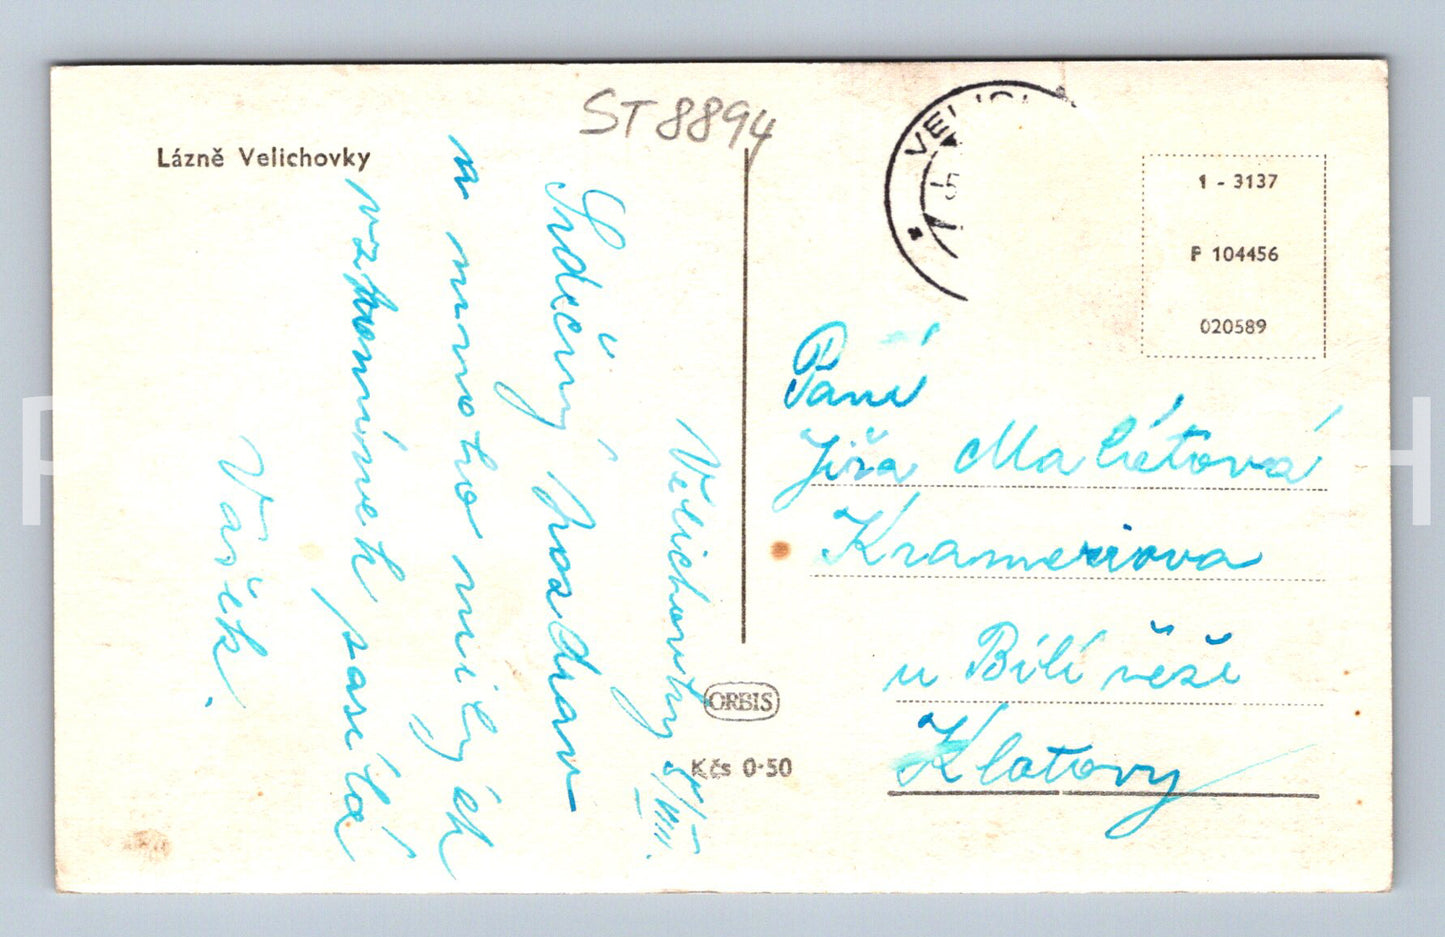 ST8894
Lázně Velichovky
Velichovky 5/VIII.
Srdečný pozdrav
a mnoho milých
vzpomínek posílá
Vašek.
VELICH
-5
1 - 3137
P 104456
020589
Paní
Jiřa Malétová
Krameriova
u Bílí věže
Klatovy
ORBIS
Kčs 0·50